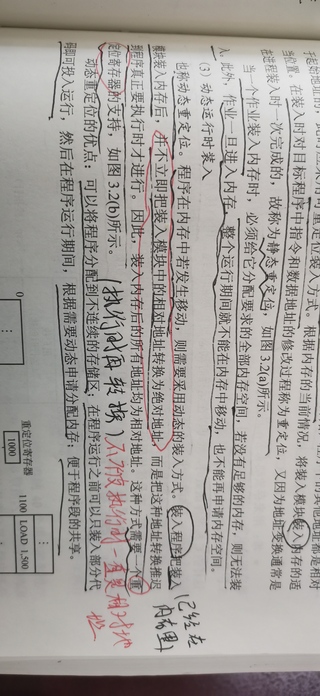 始地址的，此时应采用可重定位装入方式。根据内存的当前情况，将装入模块装入内存的适
当位置。在装入时对目标程序中指令和数据地址的修改过程称为重定位，又因为地址变换通常是
在进程装入时一次完成的，故称为静态重定位，如图 3.2(a)所示。
当一个作业装入内存时，必须给它分配要求的全部内存空间，若没有足够的内存，则无法装
入。此外，作业一旦进入内存，整个运行期间就不能在内存中移动，也不能再申请内存空间。
(3) 动态运行时装入
也称动态重定位。程序在内存中若发生移动，则需要采用动态的装入方式。装入程序把装入
模块装入内存后，并不立即把装入模块中的相对地址转换为绝对地址，而是把这种地址转换推迟
到程序真正要执行时才进行。因此，装入内存后的所有地址均为相对地址。这种方式需要一个重
定位寄存器的支持，如图 3.2(b)所示。
动态重定位的优点：可以将程序分配到不连续的存储区；在程序运行之前可以只装入部分代
码即可投入运行，然后在程序运行期间，根据需要动态申请分配内存；便于程序段的共享。
(执行时再转换)
不执行时一直是相对地
址
已经在
内存里
0
重定位寄存器
1000
1100
LOAD 1,500